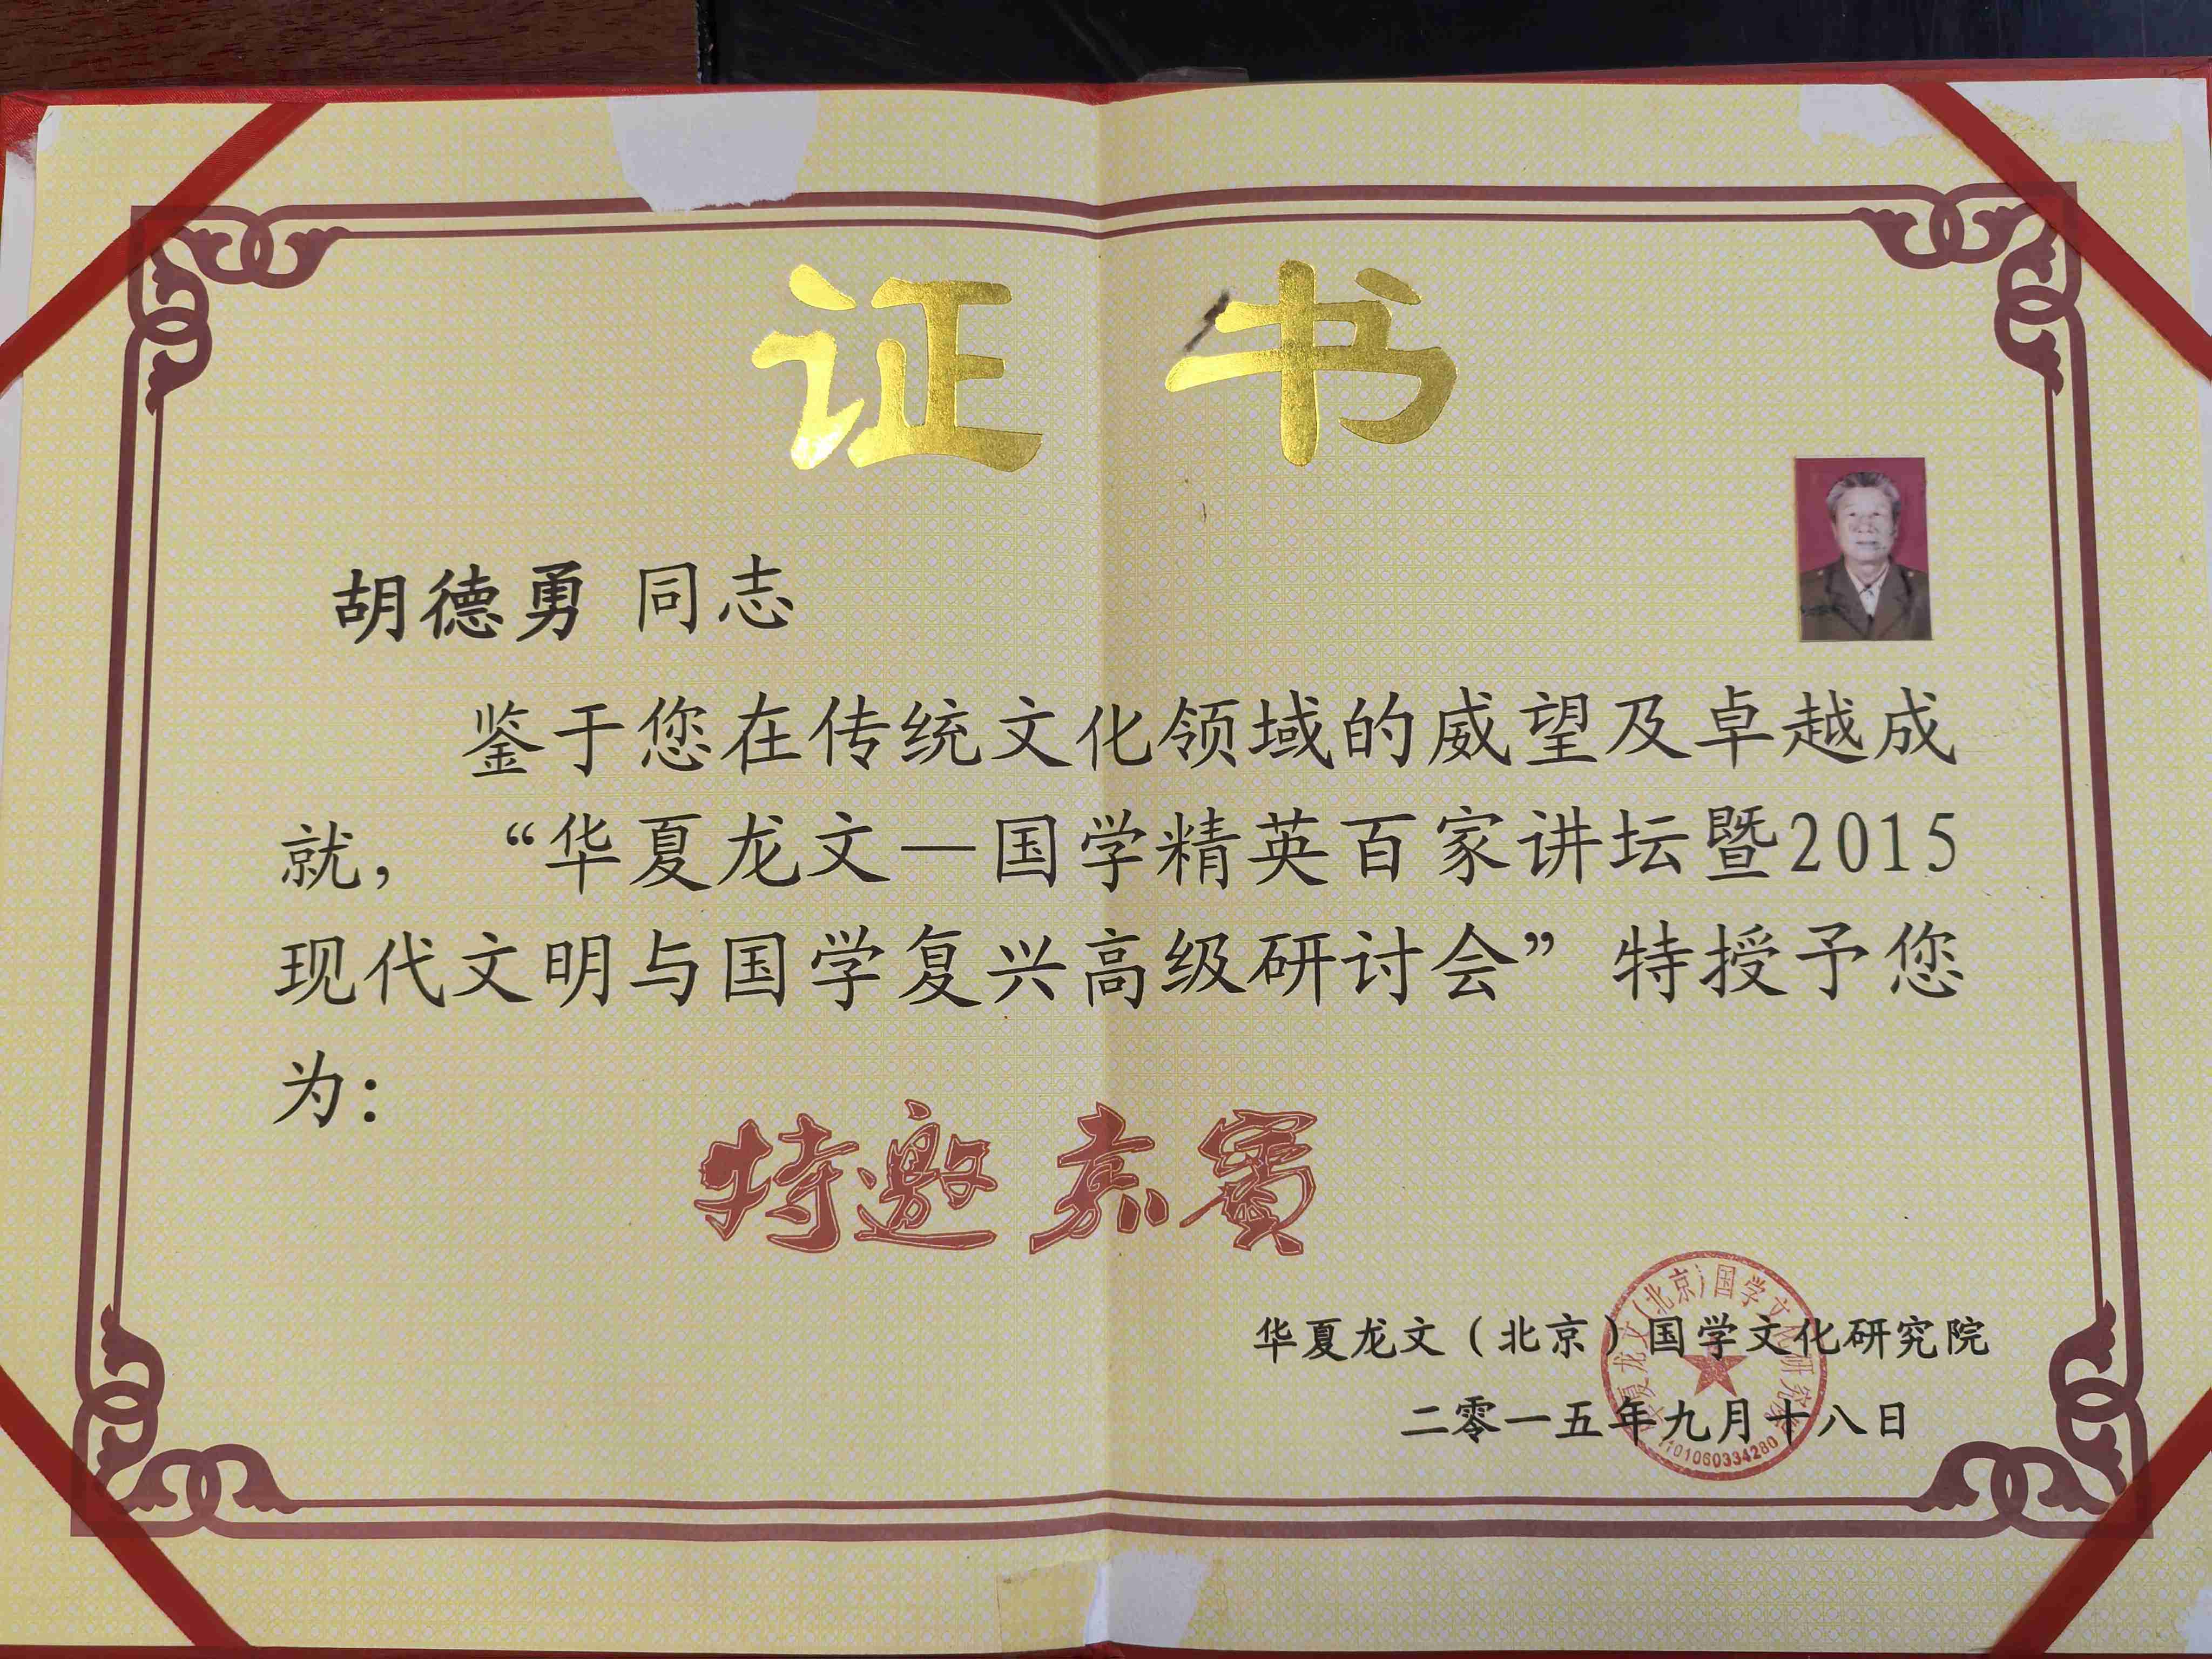 证书
胡德勇 同志
鉴于您在传统文化领域的威望及卓越成
就，“华夏龙文—国学精英百家讲坛暨2015
现代文明与国学复兴高级研讨会”特授予您
为：
特邀嘉宾
华夏龙文（北京）国学文化研究院
二零一五年九月十八日
1101060334280